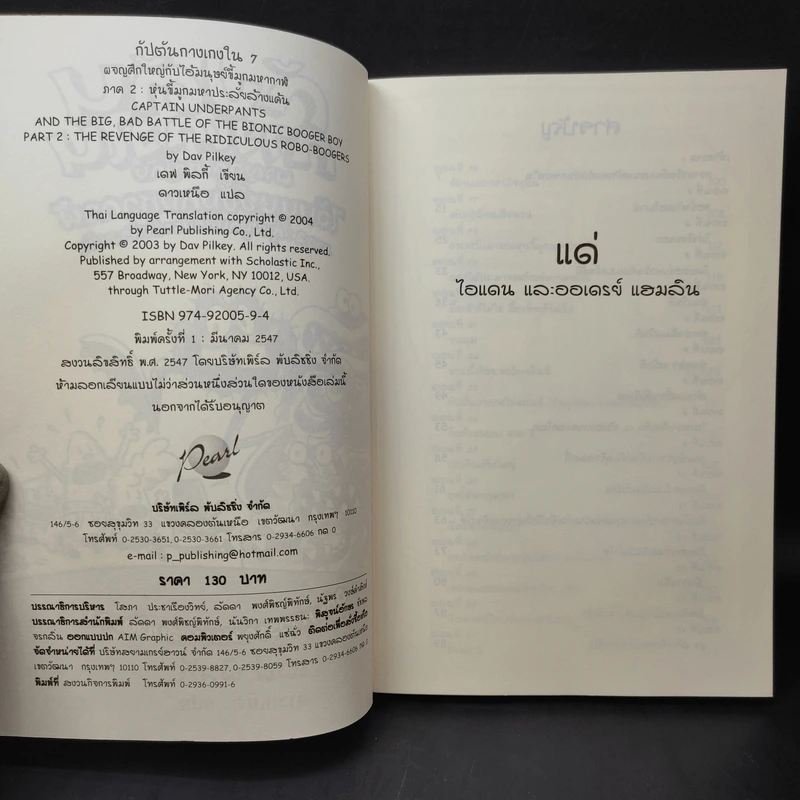 กัปตันกางเกงใน 7
ผจญศึกใหญ่กับไอ้มนุษย์ขี้มูกมหากาฬ
ภาค 2 : หุ่นขี้มูกมหาประลัยล้างแค้น
CAPTAIN UNDERPANTS
AND THE BIG, BAD BATTLE OF THE BIONIC BOOGER BOY
PART 2 : THE REVENGE OF THE RIDICULOUS ROBO-BOOGERS
by Dav Pilkey
เดฟ พิลกี้ เขียน
ดาวเหนือ แปล
Thai Language Translation copyright © 2004
by Pearl Publishing Co., Ltd.
Copyright © 2003 by Dav Pilkey. All rights reserved.
Published by arrangement with Scholastic Inc.,
557 Broadway, New York, NY 10012, USA.
through Tuttle-Mori Agency Co., Ltd.
ISBN 974-92005-9-4
พิมพ์ครั้งที่ 1 : มีนาคม 2547
สงวนลิขสิทธิ์ พ.ศ. 2547 โดยบริษัทเพิร์ล พับลิชชิ่ง จำกัด
ห้ามลอกเลียนแบบไม่ว่าส่วนหนึ่งส่วนใดของหนังสือเล่มนี้
นอกจากได้รับอนุญาต
Pearl
บริษัทเพิร์ล พับลิชชิ่ง จำกัด
146/5-6 ซอยสุขุมวิท 33 แขวงคลองตันเหนือ เขตวัฒนา กรุงเทพฯ 10110
โทรศัพท์ 0-2530-3651, 0-2530-3661 โทรสาร 0-2934-6606 กด 0
e-mail : p_publishing@hotmail.com
ราคา 130 บาท
บรรณาธิการบริหาร โสภา ประชาเรืองวิทย์, ลัดดา พงศ์พิชญ์พิทักษ์, นัฐพร
บรรณาธิการสำนักพิมพ์ ลัดดา พงศ์พิชญ์พิทักษ์, นันวิภา เทพพรรธนะ พิสูจน์อักษร
จรกลิ่น ออกแบบปก AIM Graphic คอมพิวเตอร์ พยุงศักดิ์ แซ่ฉั่ว ติดต่อเพื่อสั่งซื้อหรือ
จัดจำหน่ายได้ที่ บริษัทสยามเกรย์ฮาวน์ จำกัด 146/5-6 ซอยสุขุมวิท 33 แขวงคลองตันเหนือ
เขตวัฒนา กรุงเทพฯ 10110 โทรศัพท์ 0-2539-8827, 0-2539-8059 โทรสาร 0-2934-6606 กด 0
พิมพ์ที่ สงวนกิจการพิมพ์ โทรศัพท์ 0-2936-0991-6
แด่
ไอแดน และออเดรย์ แฮมลิน